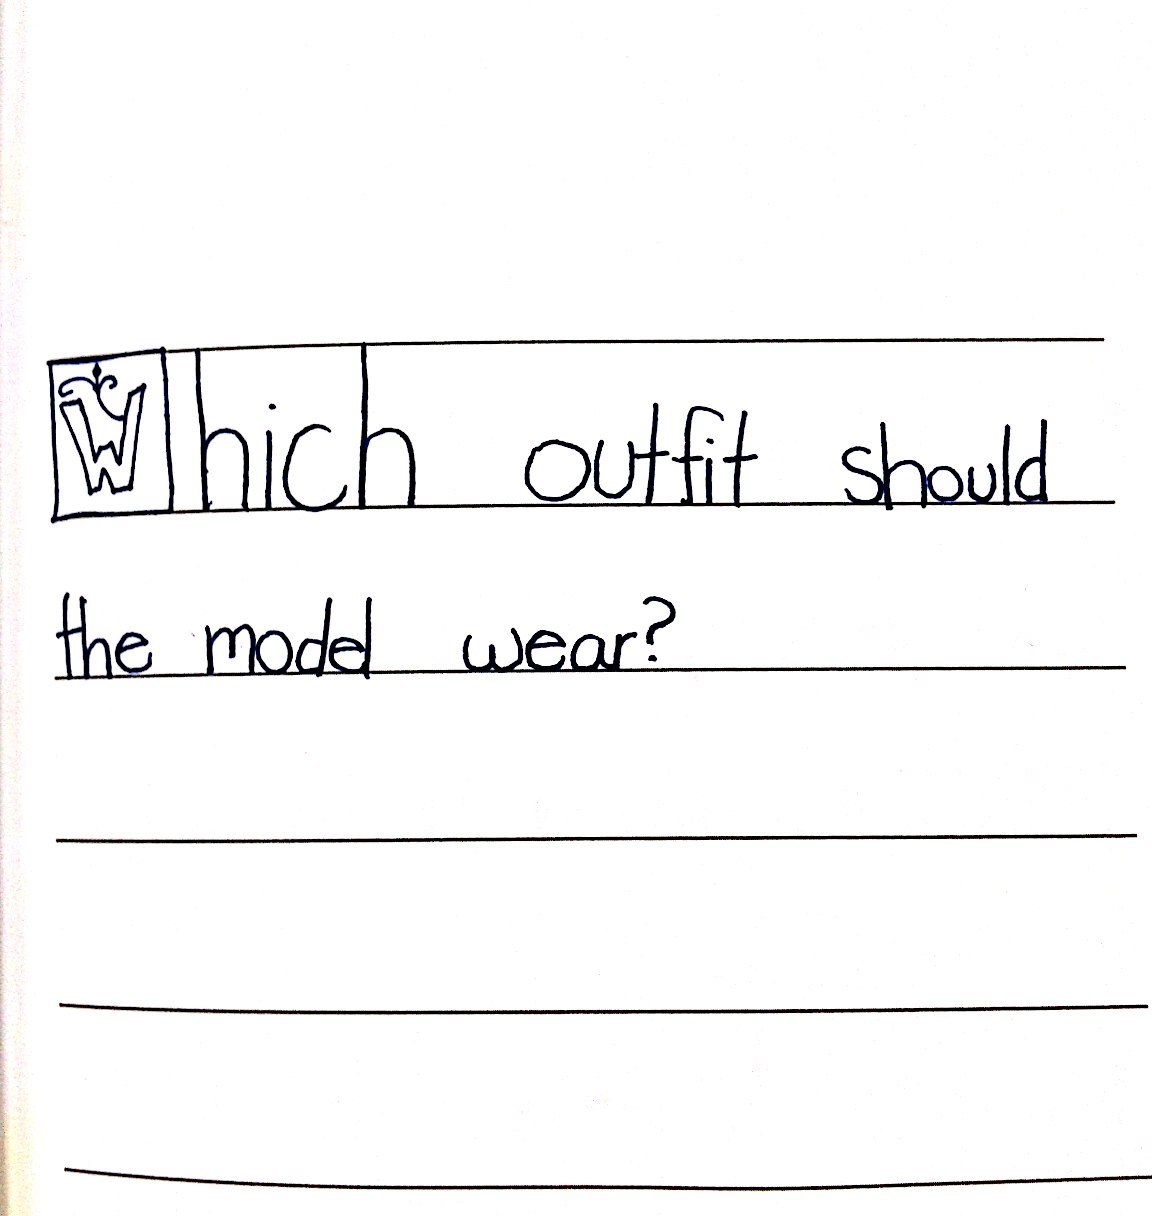 Which outfit should
the model wear?